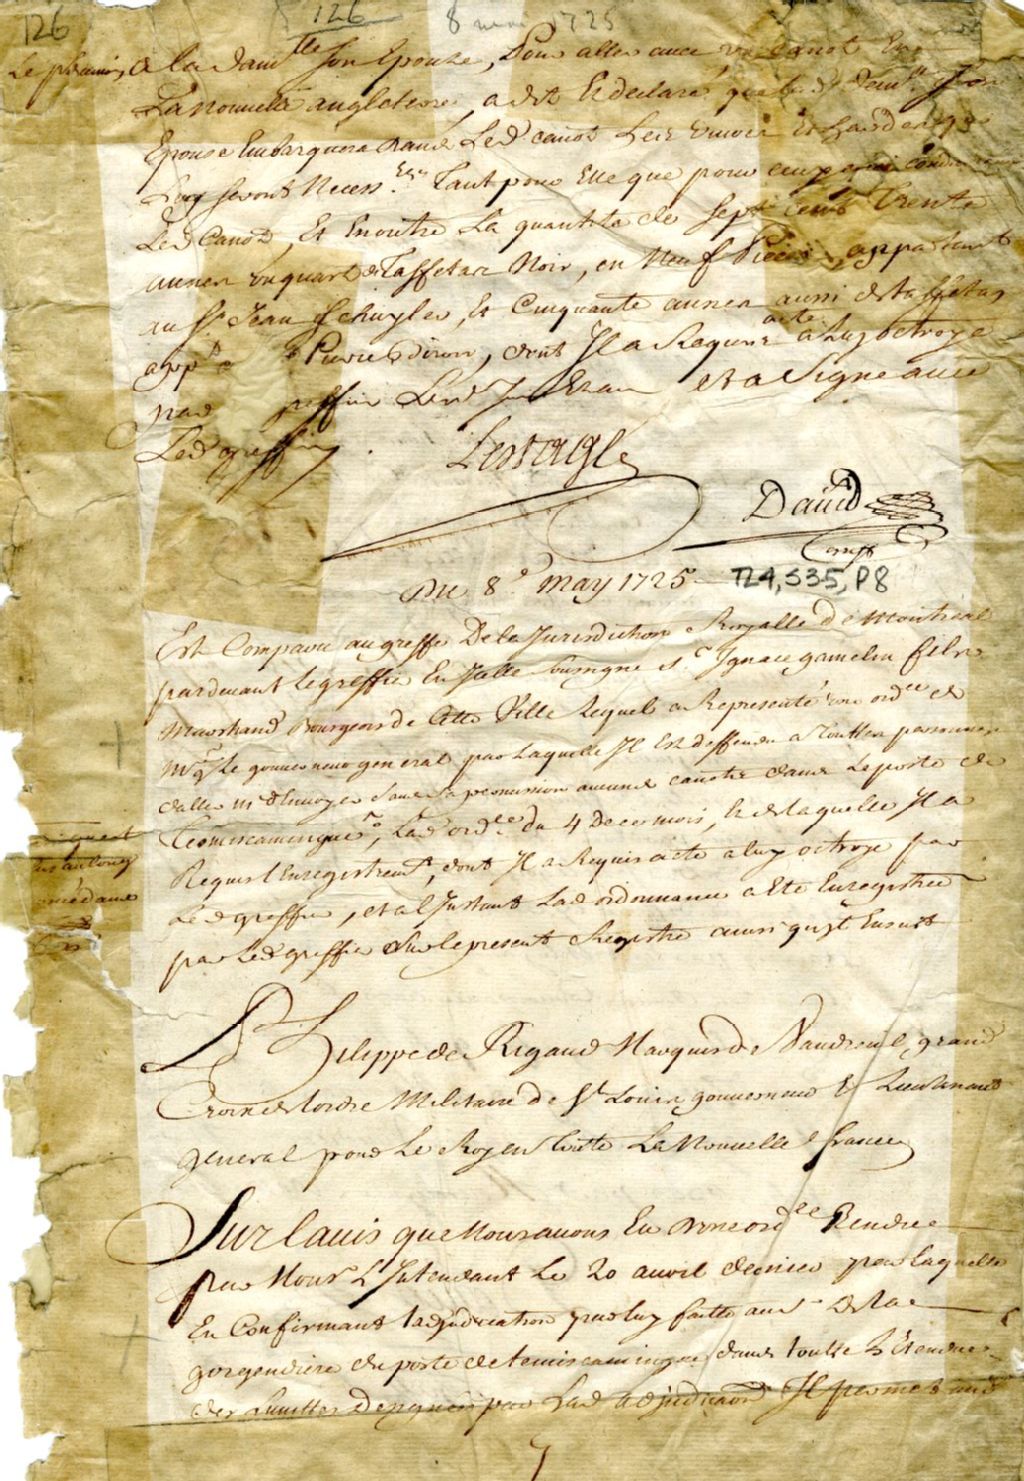 126
126
8 mai 1725
a la dam.lle son Epouse, Pour aller avec un Canot En
La Nouvelle angleterre, a dit Et declaré que lad. dem.lle Son
Epouse Embarquera dans Led. canot Les vivres Et hardes qui
Luy seront Necess.res Tant pour Elle que pour ceux qui
Led Canot, Et En outre La quantité de Sept cent Trente
aunes un quart de Taffetas Noir, en Neuf Pieces, appartenant
au Sr. Jean Schuyler, Et Cinquante aunes aussi de taffetas
app.t a Pierre diron, dont Il a Requis acte a luy octroyé
par greffier Et a Signé avec
Led greffier.
Lestage
David
Comis
Du 8.e May 1725
TL4, S35, P8
Est Comparu au greffe De la Jurisdiction Royalle de Montreal
pardevant Le greffier En Jcelle Soussigné Sr. Ignace gamelin fils
Marchand Bourgeois de Cette Ville Lequel a Representé une ord.ce de
M.r Le gouverneur general par Laquelle Il Est deffendu a Touttes personnes
daller ni dEnvoyer Sans Sa permission aucuns canots dans Le poste de
Temiscamingue, Lad. ord.ce du 4 De ce mois, Et de laquelle Il a
Requis lEnregistrem.t, dont Il a Requis acte a luy octroyé par
Led greffier, et a lJnstant Lad ordonnance a Eté Enregistrée
par Led greffier Sur le present Registre ainsi quil Ensuit
Philippe de Rigaud Marquis de Vaudreuil, grand
Croix de lordre Militaire de St Louis gouverneur Et Lieutenant
general pour Le Roy en toute La Nouvelle france
Sur lavis que Nous avons Eu dune ord.ce Rendüe
par Mons.r L'Jntendant Le 20 avril dernier par laquelle
En Confirmant ladjudication par luy faitte au S. de la
gorgendiere du poste de temiscamingue dans toutte l'Etendüe
des Limittes Designées par Lad adjudication Il permet aud